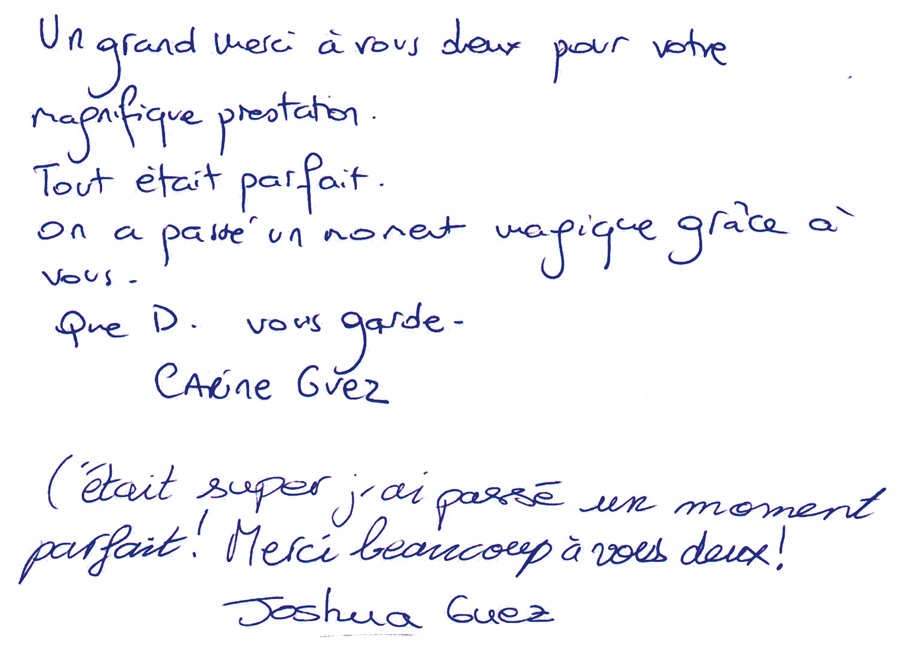 Un grand merci à vous deux pour votre
magnifique prestation.
Tout était parfait.
On a passé un moment magique grâce à
vous.
Que D. vous garde.
CARine Guez
C'était super j'ai passé un moment
parfait! Merci beaucoup à vous deux!
Joshua Guez